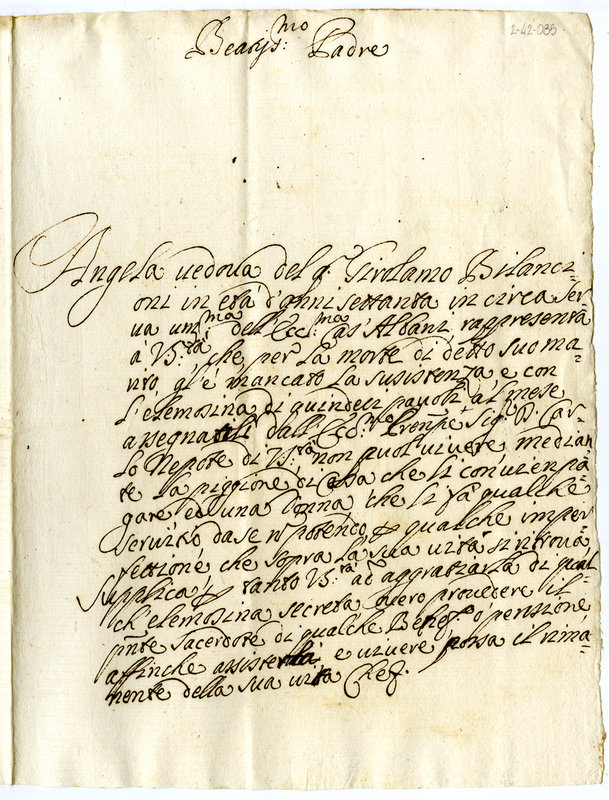 2-42-085
Beatiss:mo Padre
Angela vedova del q. Girolamo Bilanci=
oni in età d'anni settanta in circa Ser=
va um:ma dell'Ecc:ma Casa Albani, rappresenta
à V.S:tà che per la morte di detto suo ma=
rito gl'è mancato la susistenza e con
l'elemosina di quindeci pauoli al mese
assegnatili dall'Ecc:mo Prenpe Sig. D. Car=
lo Nepote di V.S:tà non puol vivere, median
te la piggione di Casa che li convien pa=
gare ed una donna che li fà qualche
servitio da se n potendo p qualche imper
fettione che sopra la sua vita si ritrova
Supplica p tanto V.S:tà ad aggratiarla di qual
ch'elemosina secreta overo provedere il
pnte Sacerdote di qualche Benef. o pensione
affinche assisterla e vivere possa il rima=
nente della sua vita Che &.